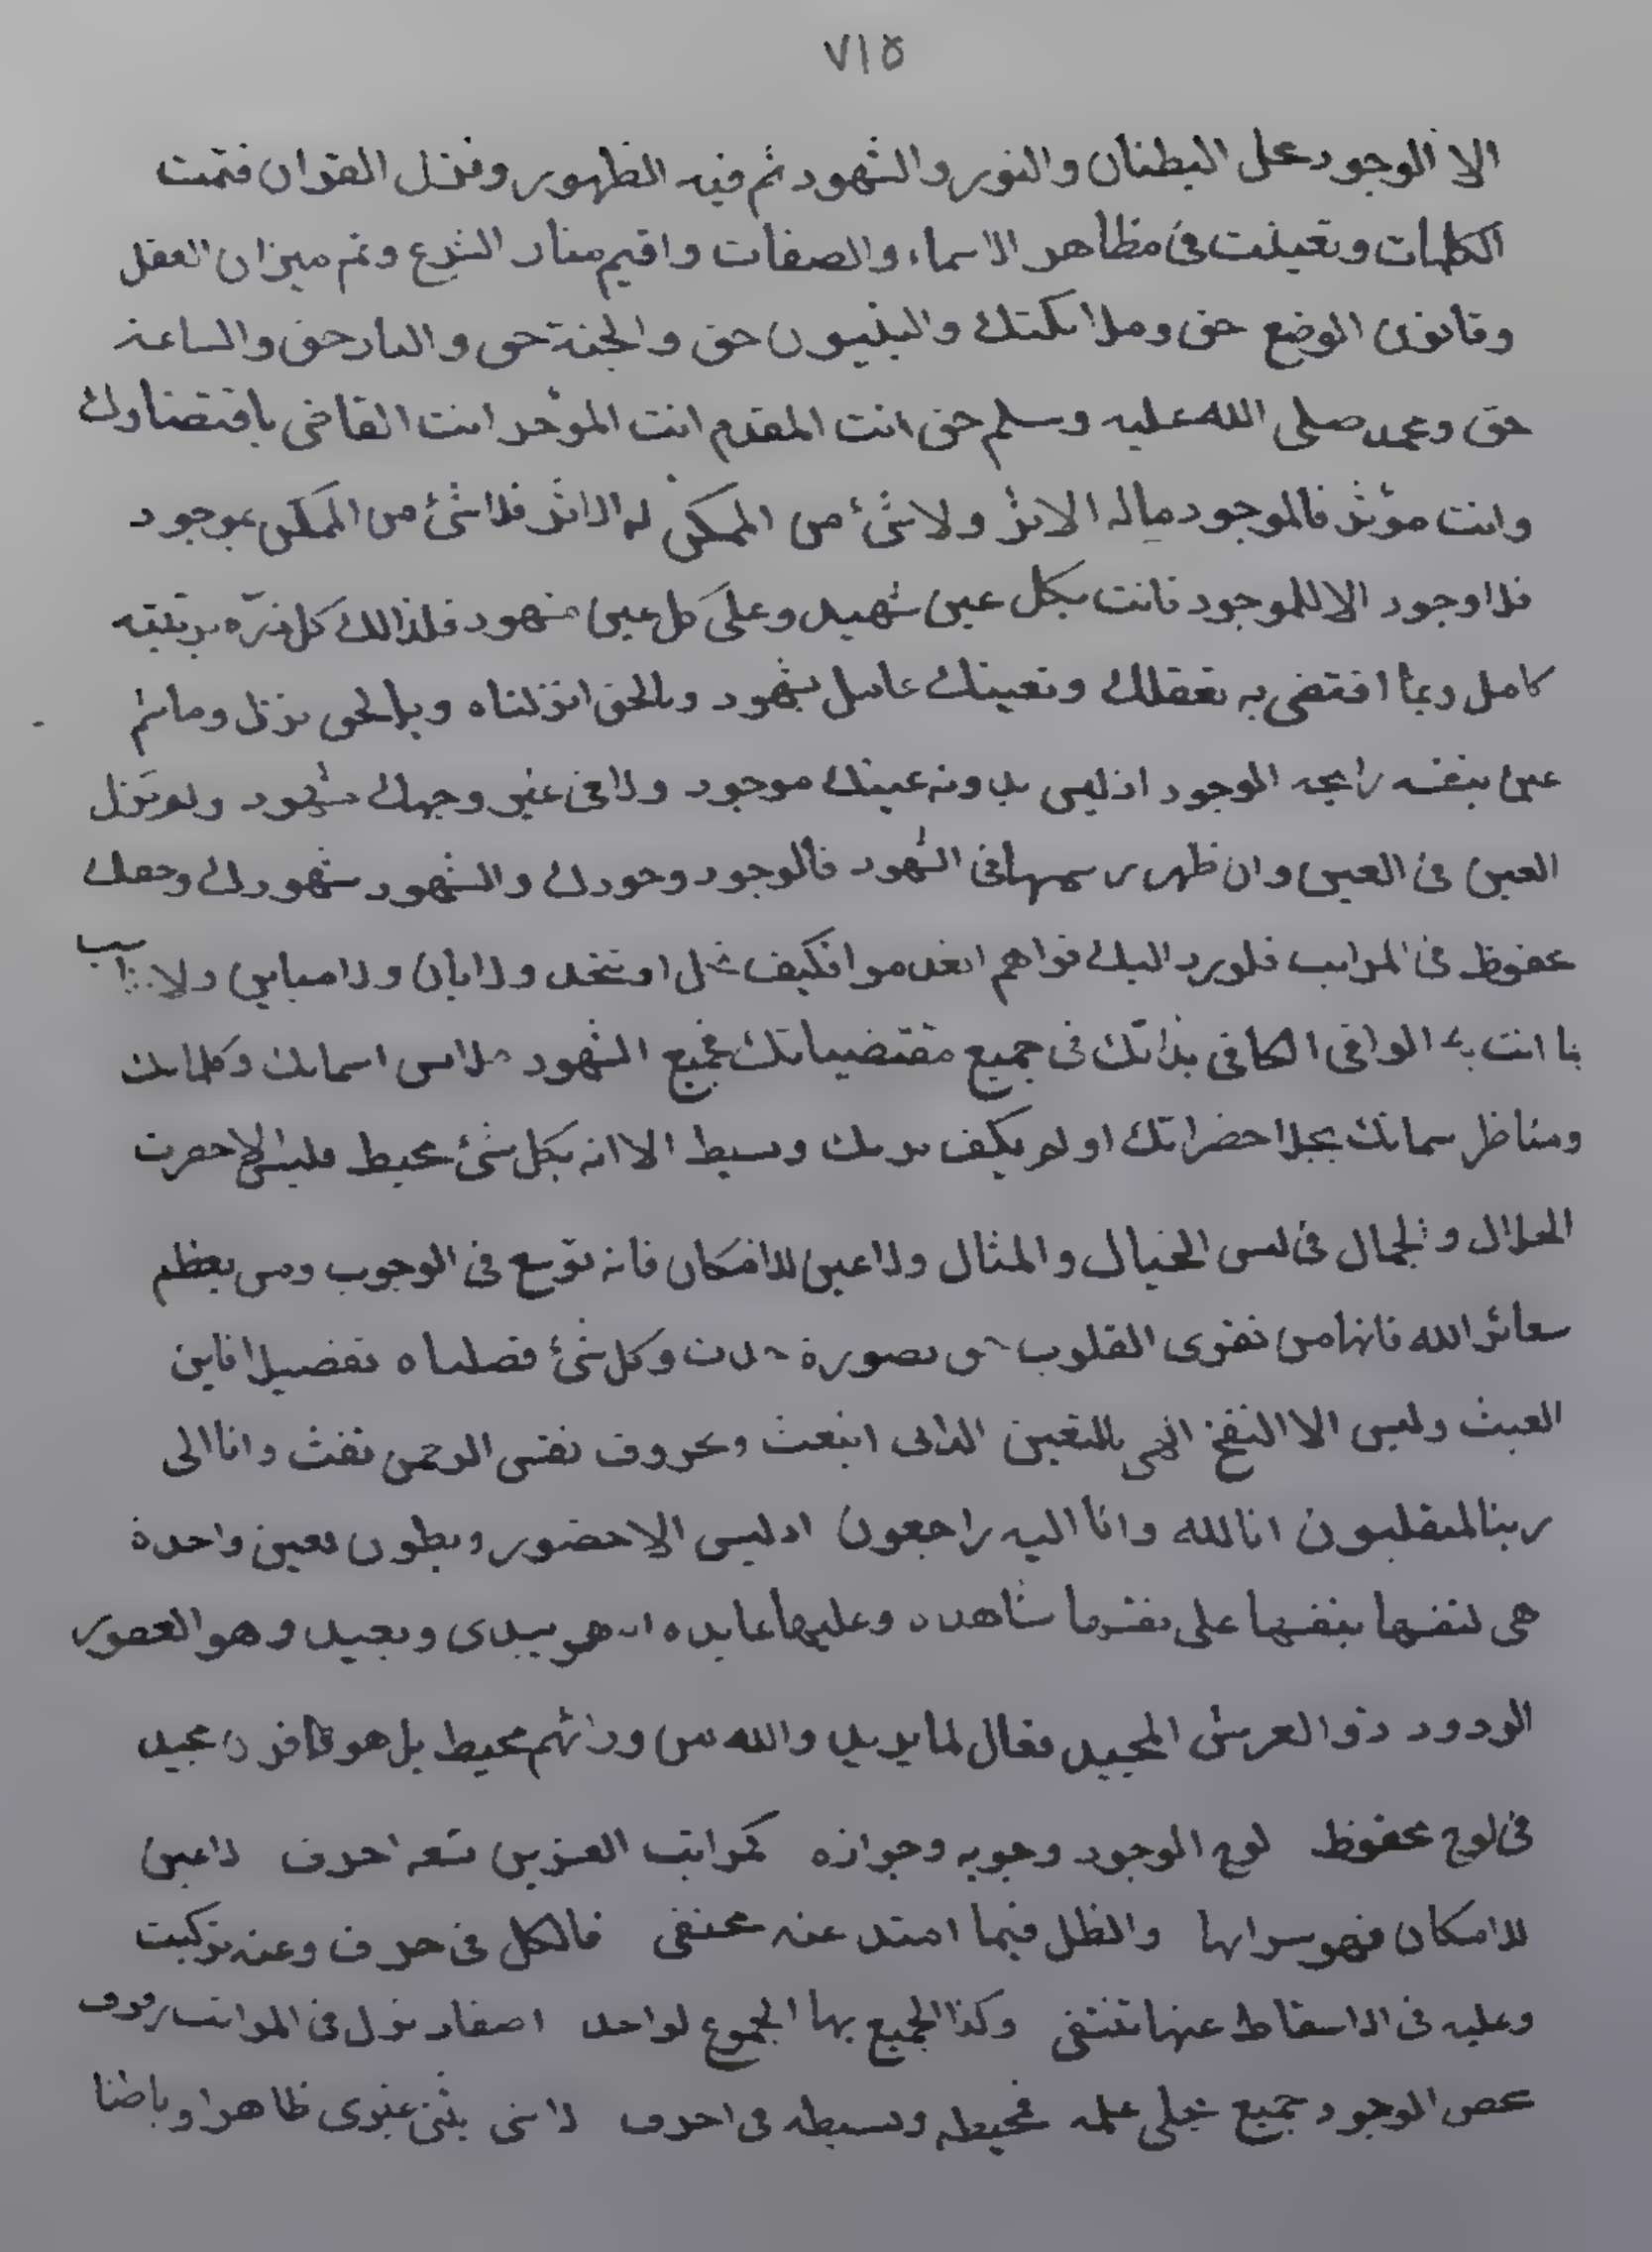 ٧١٥
الا الوجود على البطنان والنور والشهود ثم فيه الظهور ونزل القران فتمت
الكلمات وتعينت فى مظاهر الاسماء والصفات واقيم منار الشرع وتم ميزان العقل
وقانون الوضع حق وملائكتك والنبيون حق والجنة حق والنار حق والساعة
حق ومحمد صلى الله عليه وسلم حق انت المقدم انت المؤخر انت القاضى باقتضاوك
وانت مؤثر فالموجود ماله الاثر ولا شئ من الممكن له الاثر فلا شئ من الممكن بموجود
فلا وجود الا للموجود فانت بكل عين شهيد وعلى كل عين مشهود فلذالك كل ذرة برتبته
كامل وبما اقتضى به تعقلك وتعينك عامل بشهود وبالحق انزلناه وبالحق نزل وما ثم
عين بنفسه رايحه الوجود اذ ليس بدونه عينك موجود ولا فى غير وجهك مشهود ولم تزل
العين فى العين وان ظهر رسمها فى الشهود فالوجود وجودك والشهود شهودك وحقك
محفوظ فى المراتب فلورد اليك فراهم انعدموا فكيف تحل او تتخد ولا بان ولا مباين ولا
انت الوافى الكافى بذاتك فى جميع مقتضياتك فجميع الشهود ملابس اسمائك وكلماتك
ومناظر سماتك بمجلا حضراتك اولم يكف بربك وسيط الا انه بكل شئ محيط فليس الا حضرت
الجلال والجمال فى لبس الخيال والمثال ولا عين للامكان فانه توسع فى الوجوب ومن يعظم
شعائر الله فانها من تقوى القلوب بصورة وكل شئ فصلناه تفصيلا فاين
العبث وليس الا النفخ بالتعين الذاتى انبعث وبحروف نفس الرحمن نفث وانا الى
ربنا لمنقلبون انا لله وانا اليه راجعون اذ ليس الا حضور وبطون بعين واحدة
هى لنفسها بنفسها على نفسها شاهده وعليها عايده انه هو يبدى ويعيد وهو الغفور
الودود ذو العرش المجيد فعال لما يريد والله من ورائهم محيط بل هو قران مجيد
فى لوح محفوظ لوح الوجود وجوبه وجوازه كمراتب العزين تسعه احرف لا عين
للامكان فهو سرابها والظل فيما امتد عنه مختفى فالكل فى حرف وعنه تركبت
وعليه فى الاسقاط عنها تنتفى وكذا الجميع بها الجموع لواحد اصفار نزل فى المراتب
محض الوجود جميع تجلى علمه فمحيطه وبسيطه فى احرف لا شئ بشئ غيرى ظاهرا وباطنا